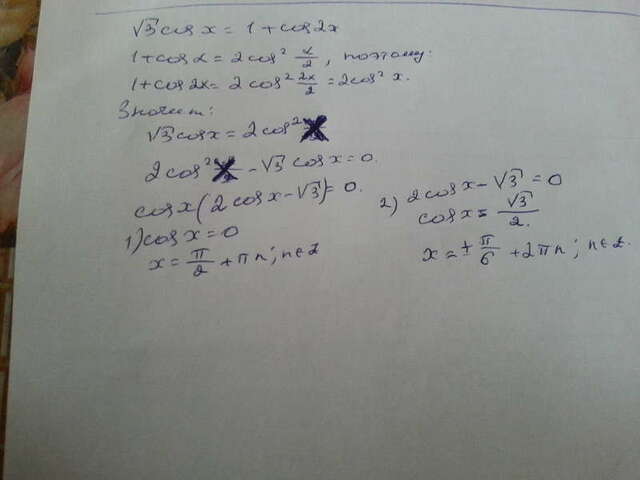 √3 cos x = 1 + cos 2x
1 + cos α = 2 cos² α/2, поэтому:
1 + cos 2x = 2 cos² 2x/2 = 2 cos² x.
Значит:
√3 cos x = 2 cos² x
2 cos² x - √3 cos x = 0.
cos x (2 cos x - √3) = 0.
1) cos x = 0
x = π/2 + πn; n ∈ Z
2) 2 cos x - √3 = 0
cos x = √3/2.
x = ± π/6 + 2πn; n ∈ Z.